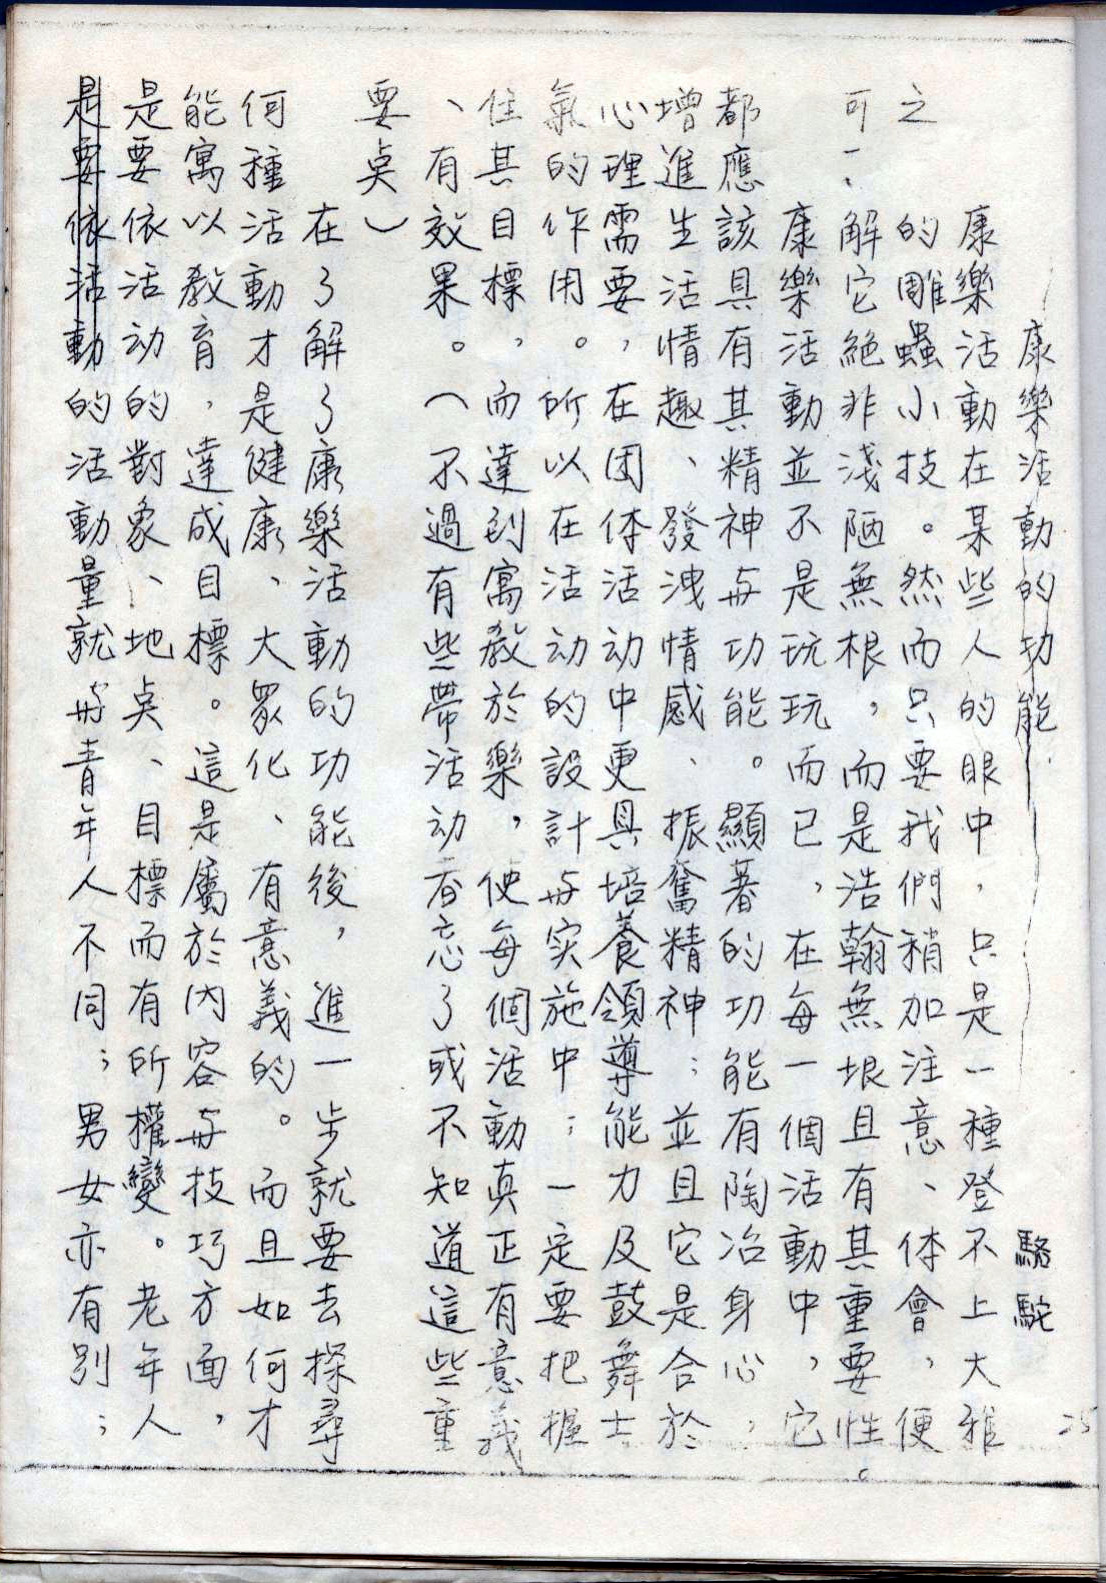 康樂活動的功能　駱駝
康樂活動在某些人的眼中，只是一種登不上大雅
之的雕蟲小技。然而只要我們稍加注意、体會，便
可一、解它絕非淺陋無根，而是浩翰無垠且有其重要性。
康樂活動並不是玩玩而已，在每一個活動中，它
都應該具有其精神与功能。顯著的功能有陶冶身心，
增進生活情趣、發洩情感、振奮精神；並且它是合於
心理需要，在团体活动中更具培養領導能力及鼓舞士
氣的作用。所以在活动的設計与实施中；一定要把握
住其目標，而達到寓教於樂，使每個活動真正有意義
、有效果。（不過有些帶活动者忘了或不知道這些重
要奌）
在了解了康樂活動的功能後，進一步就要去探尋
何種活動才是健康、大眾化、有意義的。而且如何才
能寓以教育，達成目標。這是屬於內容与技巧方面，
是要依活动的對象、地奌、目標而有所權變。老年人
是要依活動的活動量就与青年人不同；男女亦有別；
25